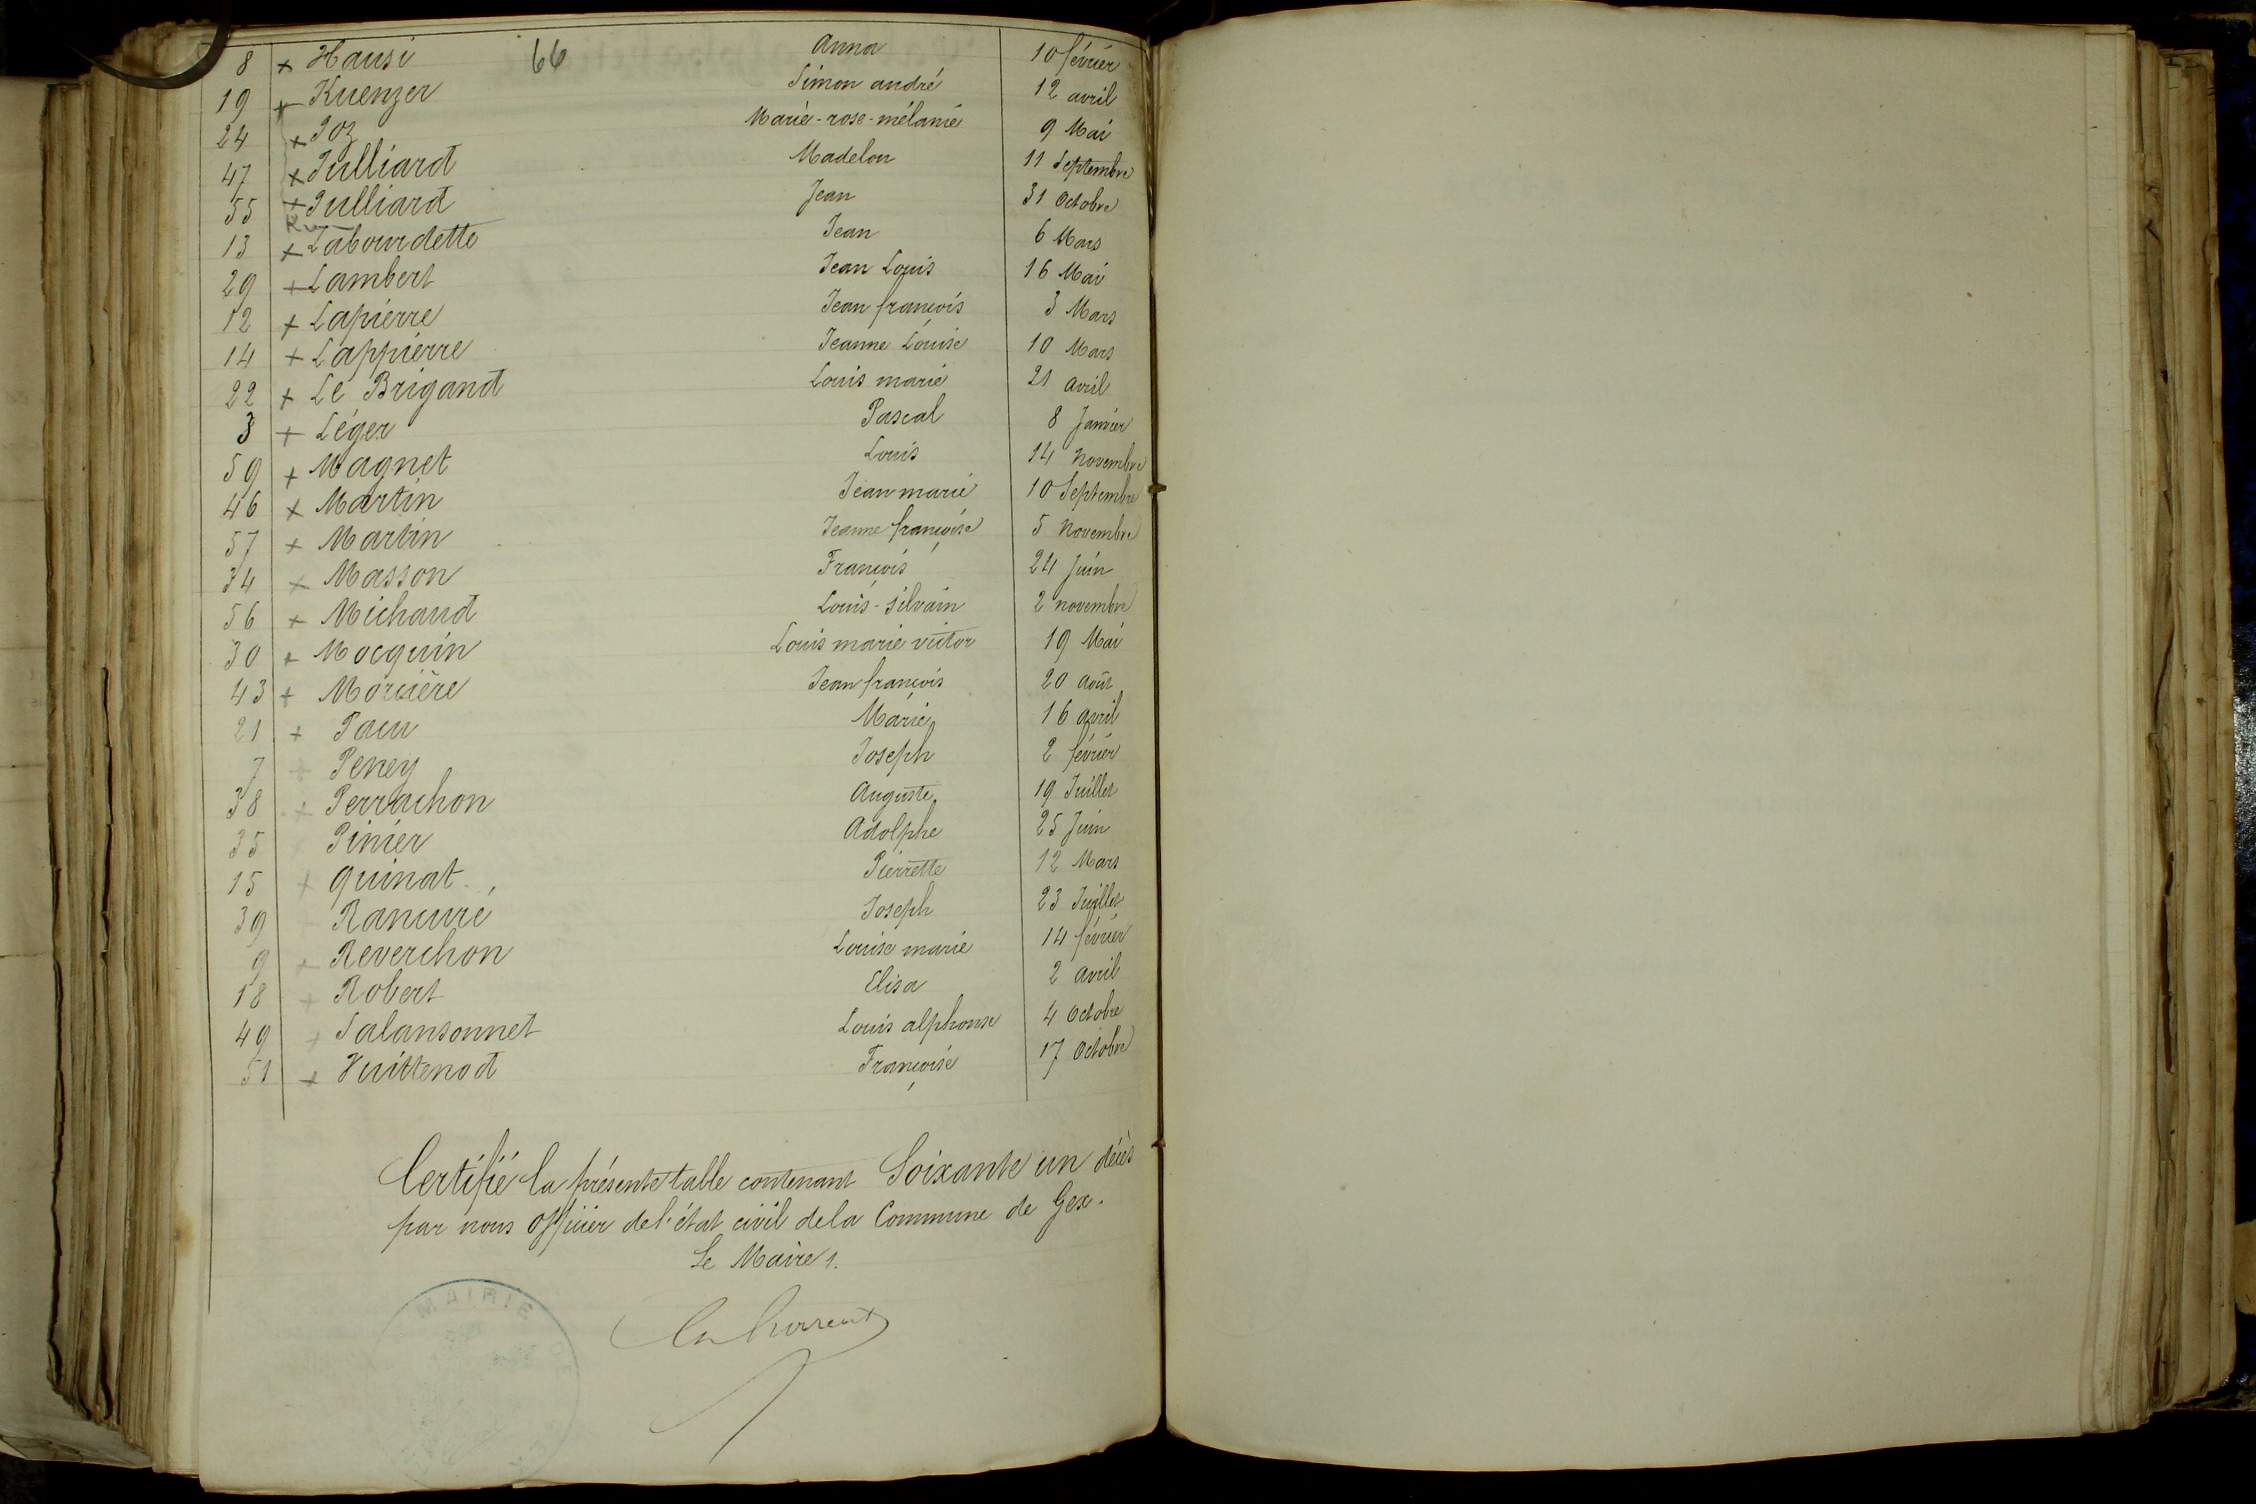 8 + Hausi 66 Anna 10 février
19 + Kuenzer Simon andré 12 avril
24 + Joz Marie-rose-mélanie 9 Mai
47 + Julliard Madelon 11 Septembre
55 + Julliard Jean 31 Octobre
13 + Labourdette Jean 6 Mars
29 + Lambert Jean Louis 16 Mai
12 + Lapierre Jean françois 3 Mars
14 + Lappierre Jeanne Louise 10 Mars
22 + Le Brigand Louis marie 21 avril
3 + Léger Pascal 8 Janvier
59 + Magnet Louis 14 Novembre
46 + Martin Jean marie 10 Septembre
57 + Martin Jeanne françoise 5 Novembre
34 + Masson François 24 Juin
56 + Michaud Louis-silvain 2 novembre
30 + Mocquin Louis marie victor 19 Mai
43 + Morcière Jean françois 20 août
21 + Pacu Marie 16 avril
7 + Peney Joseph 2 février
38 + Perrachon Auguste 19 Juillet
35 Pinier Adolphe 25 Juin
15 + Quinat Pierrette 12 Mars
39 Rancuré Joseph 23 Juillet
9 + Reverchon Louise marie 14 février
18 + Robert Elisa 2 avril
49 + Salansonnet Louis alphonse 4 Octobre
51 + Vuittenod Françoise 17 Octobre
Certifié la présente table contenant Soixante un décès
par nous officier de l'état civil de la Commune de Gex.
Le Maire
MAIRIE DE